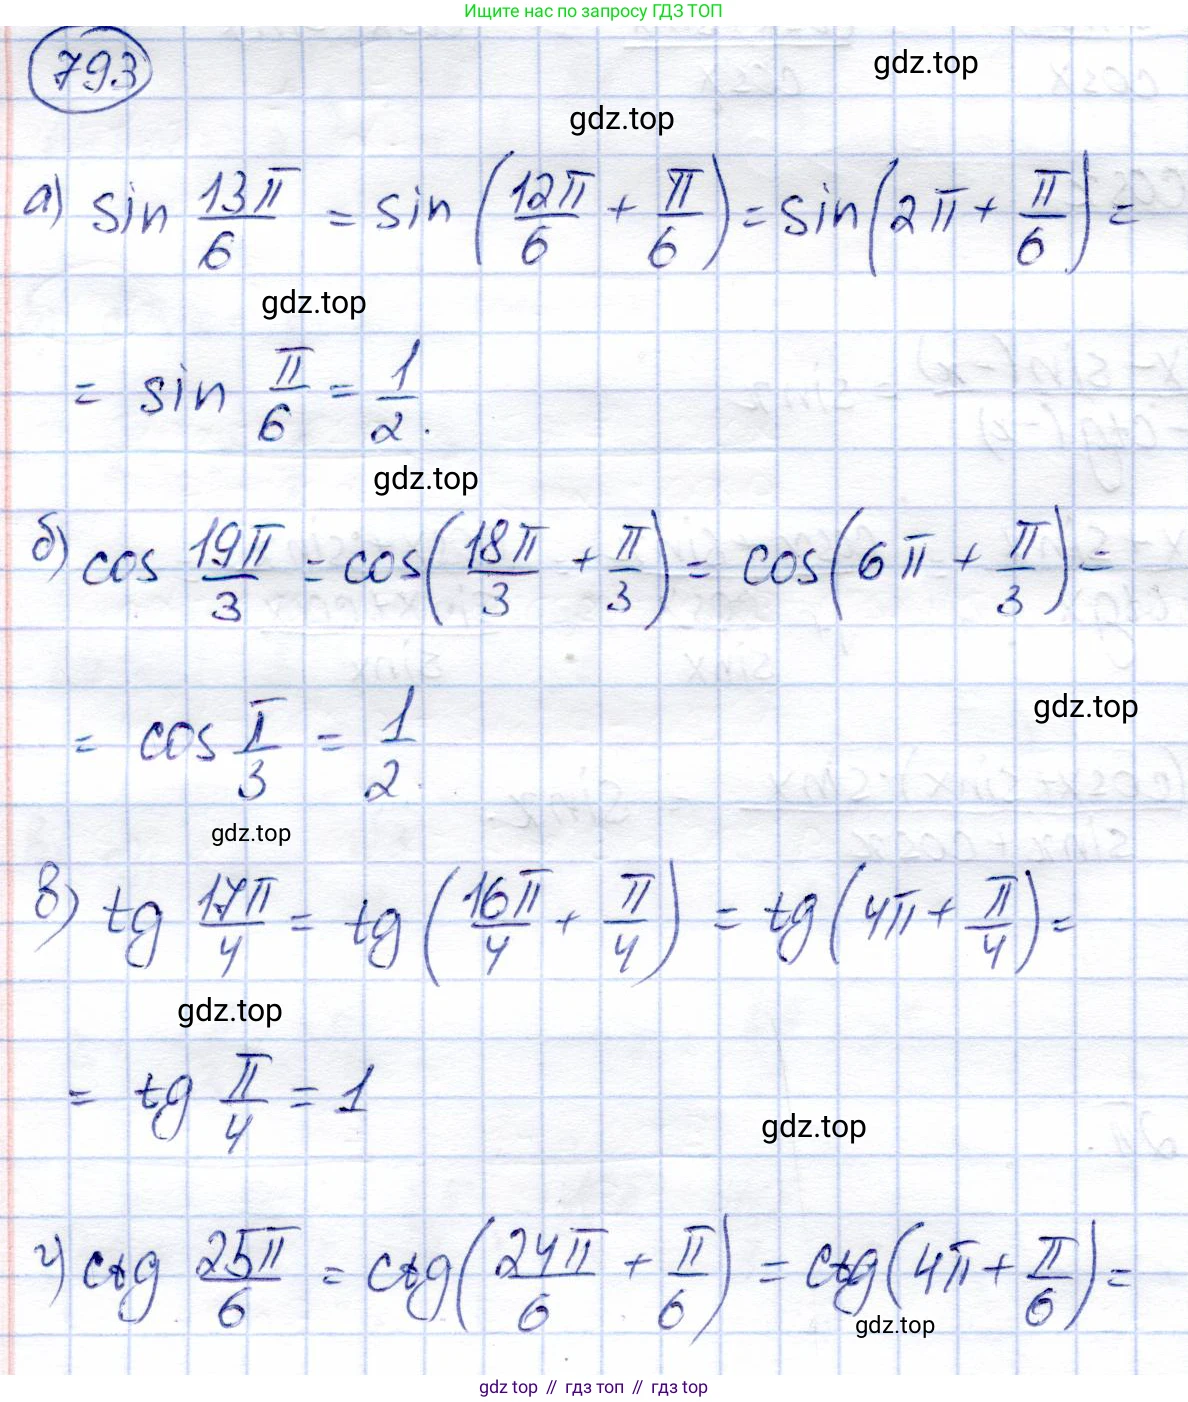 Ищите нас по запросу ГДЗ ТОП
793
gdz.top
gdz.top
а) sin 13π/6 = sin (12π/6 + π/6) = sin (2π + π/6) =
gdz.top
= sin π/6 = 1/2.
gdz.top
б) cos 19π/3 = cos (18π/3 + π/3) = cos (6π + π/3) =
gdz.top
= cos π/3 = 1/2.
gdz.top
в) tg 17π/4 = tg (16π/4 + π/4) = tg (4π + π/4) =
gdz.top
= tg π/4 = 1
gdz.top
г) ctg 25π/6 = ctg (24π/6 + π/6) = ctg (4π + π/6) =
gdz.top
gdz top // гдз топ // гдз top